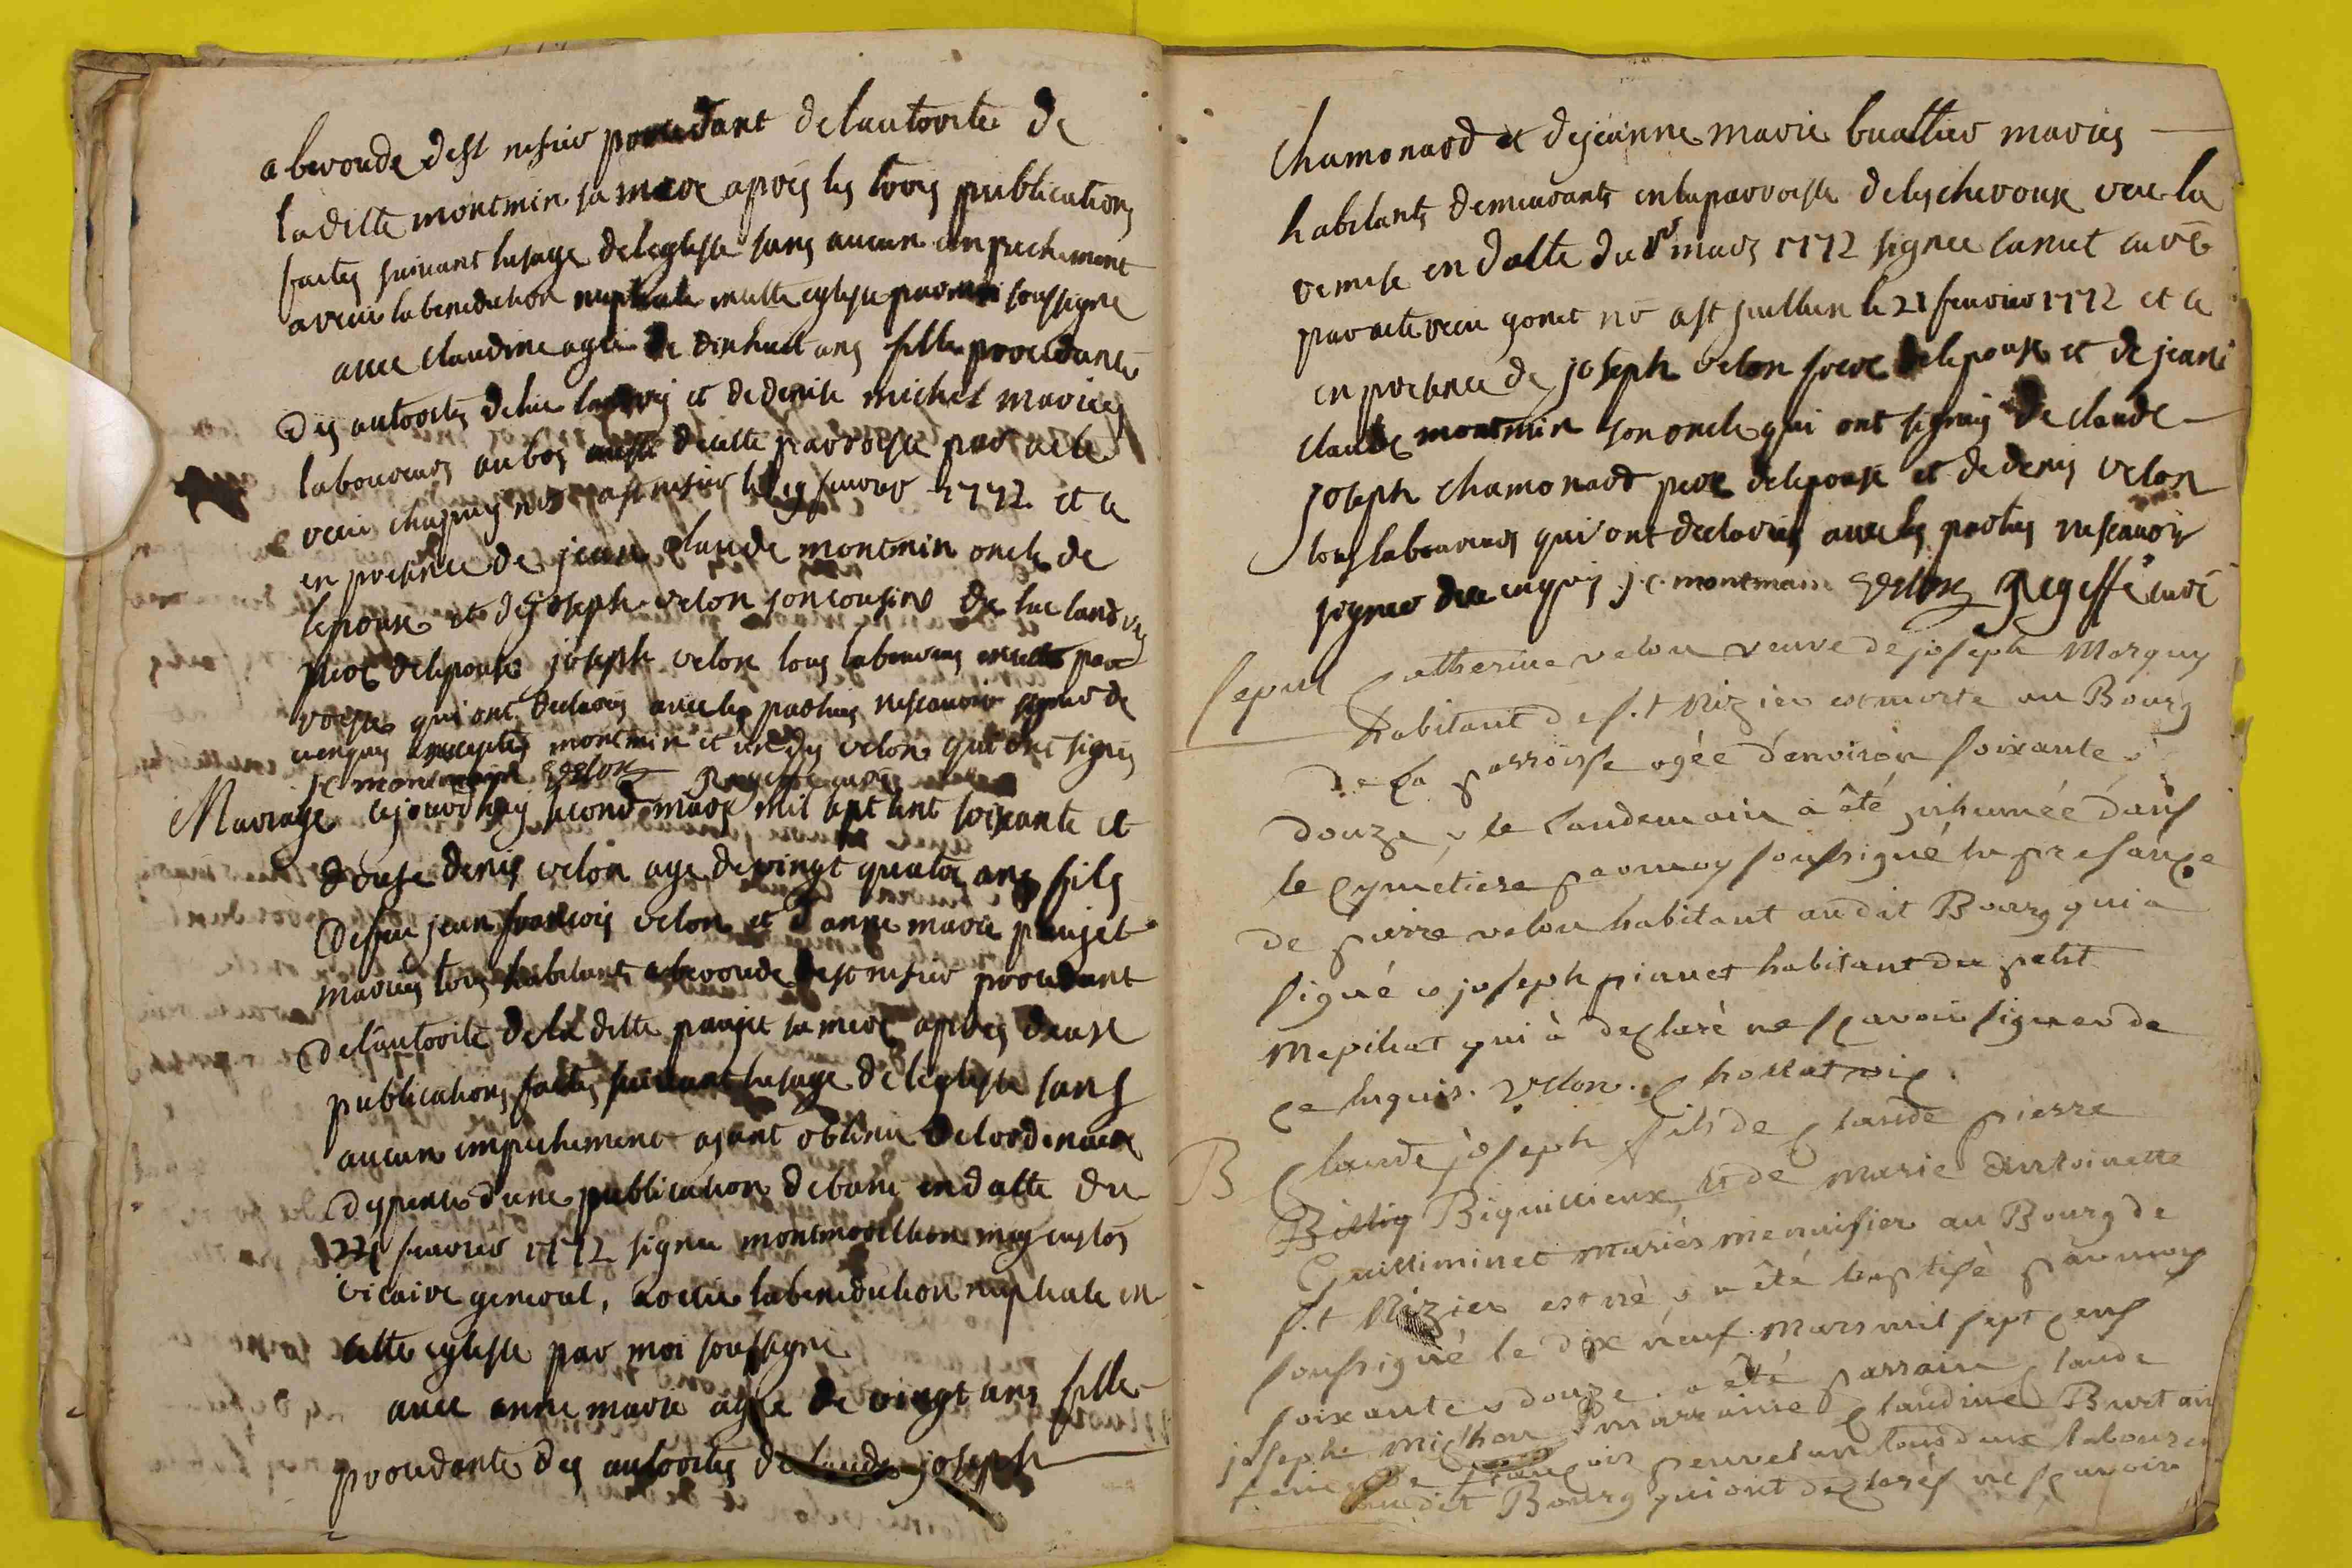 a beroude dest nisier procedant delautorite de
la ditte montmin sa mere apres les trois publications
faites suivant lusage deleglise sans aucun empechement
a receu la benediction nuptiale en cette eglise par moi soussigne
avec claudine agee de dixhuit ans fille procedante
des autorites de luc landrey et de denise michel maries
laboureurs au bos de cette parroisse par acte
receu chapuy nre a st nisier le 19 fevrier 1772 et ce
en presence de jean claude montmin oncle de
lepoux et de joseph velon son cousin de luc landrey
pere delepouse joseph velon tous laboureurs en cette par
roisse qui ont declares avec les parties nescavoir signer de
ce enquis exceptes montmin et un des velon qui ont signes
jc montmain velon gregeffe curé
Mariage cejourdhuy second mars mil sept cent soixante et
douse denis velon age devingt quatre ans fils
defeu jean francois velon et danne marie paujet
maries tous habitants a beroude dest nisier procedant
delautorite dela ditte paujet sa mere apres deux
publications faites suivant lusage deleglise sans
aucun empechement ayant obtenu delordinaire
dispense dune publication debanc en datte du
fevrier 1772 signee montmorillon
vicaire general, a receu labenediction nuptiale en
cette eglise par moi soussigne
avec anne marie agee de vingt ans fille
procedante des autorites de claude joseph
chamonard et dejeanne marie buattier maries
habitants demeurants en la parroisse deleschevoux veu la
remise en datte du 1r mars 1772 signee canut curé
par acte receu gonet nre a st juillien le 21 fevrier 1772 et ce
en presence de joseph velon frere delepoux et de jean
claude montmin son oncle qui ont signes de claude
joseph chamonard pere delepouse et de denis velon
tous laboureurs qui ont declares avec les parties nescavoir
signer de ce enquis jc montmain velon gregeffe curé
sepul Catherine velon veuve de joseph Morguy
habitant de s.t Nizier est morte au Bourg
de la parroisse agée d'environ soixante et
douze et le landemain a été inhumée dans
le cymetiere par moy soussigné en presance
de pierre velon habitant au dit Bourg qui a
signé et joseph pianet habitant du petit
Mepiliat qui à declaré ne scavoir signer de
ce enquis. Velon. Chossat vic.
B Claude joseph fils de claude pierre
Billiy Biguillieux et de marie Antoinette
Guilliminet mariés menuisier au Bourg de
s.t Nizier est né et a été baptisé par moy
soussigné le dix neuf mars mil sept cens
soixante et douze. a été parrain claude
joseph michon marraine claudine Burtain
femme de françois peuvelan tous deux laboureur
au dit Bourg qui ont declarés ne scavoir